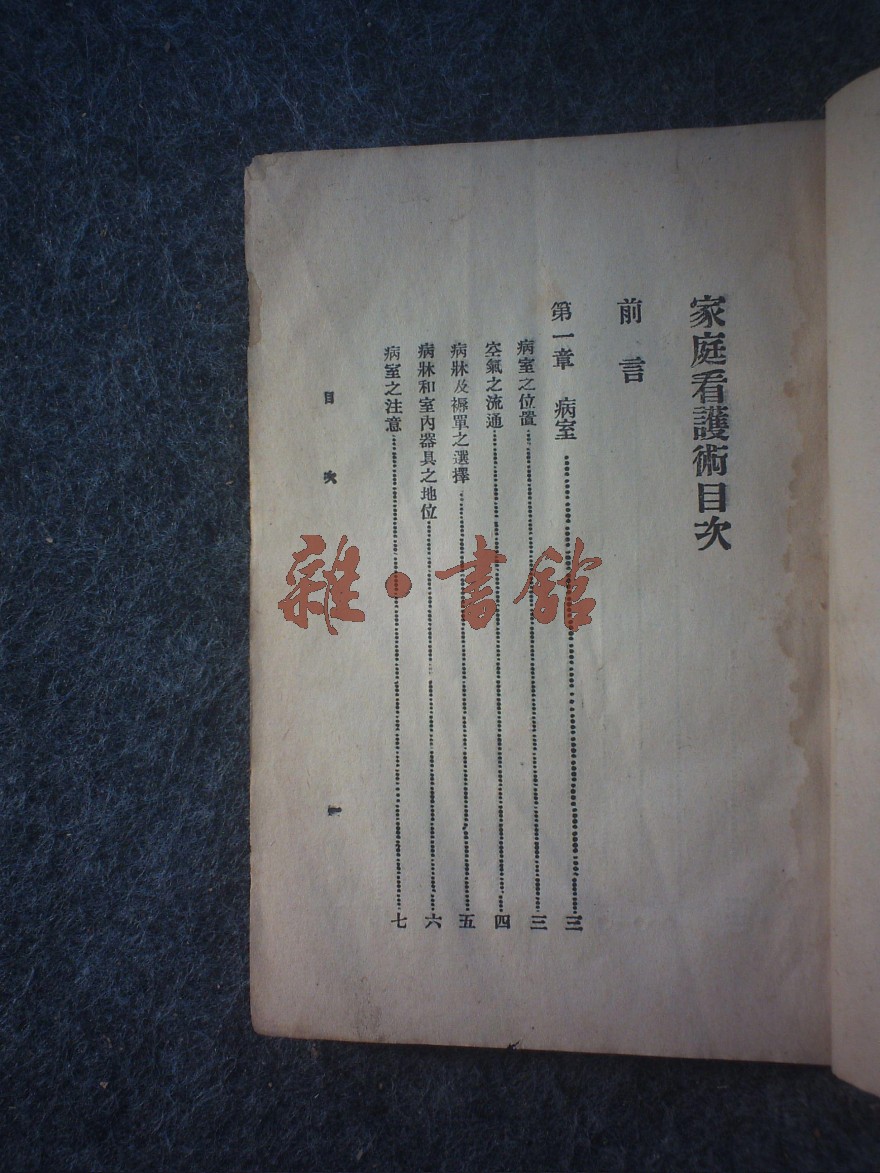 家庭看護術目次
前言
第一章 病室……三
病室之位置……三
空氣之流通……四
病牀及褥單之選擇……五
病牀和室內器具之地位……六
病室之注意……七
目次 一
雜·書館